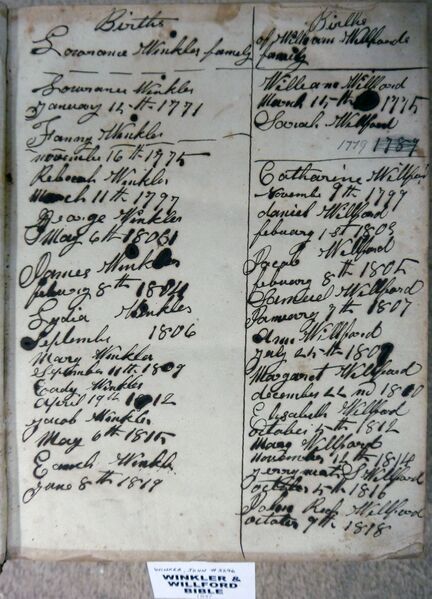 Births
Lowrance Winkler family
Lowrance Winkler
January 14th 1771
Fanny Winkler
november 16th 1775
Rebecah Winkler
March 11th 1797
George Winkler
May 6th 1801
James Winkler
febuary 8th 1804
Lydia Winkler
September 1806
Mary Winkler
September 11th 1809
Eady Winkler
April 19th 1812
Jacob Winkler
May 6th 1815
Enoch Winkler
June 8th 1819
Births
of William Willfords
family
William Willford
March 15th 1775
Sarah Willford
1779 1789
Catharine Willford
November 9th 1799
daniel Willford
febuary 1st 1803
Jacob Willford
febuary 8th 1805
Samuel Willford
January 9th 1807
Ann Willford
July 25th 1809
Margaret Willford
december 22 nd 1810
Elizabeth Willford
october 5th 1812
Mary Willford
november 11th 1814
Jerrymiah S Willford
october 5th 1816
John Willford
october 9th 1818
WINKLER, JOHN #3296
WINKLER &
WILLFORD
BIBLE